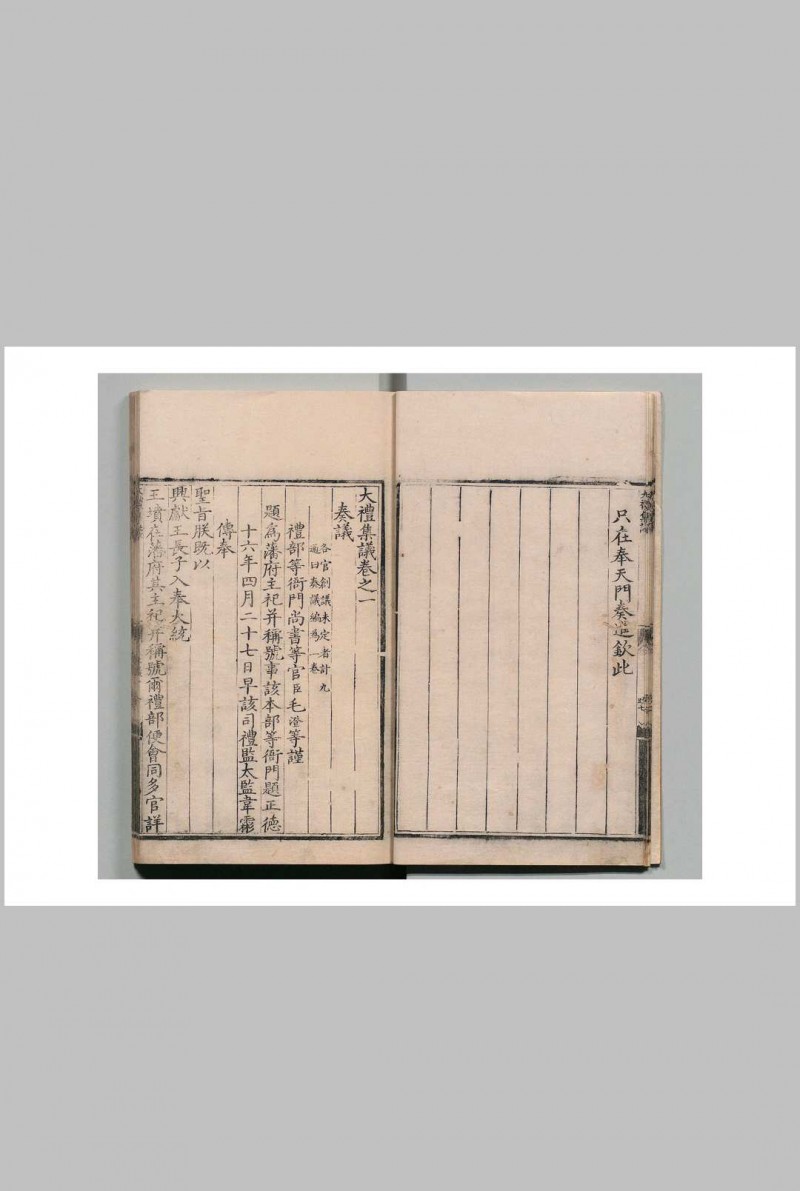 只在奉天門奏進欽此
大禮集議卷之一
奏議
各官創議未定者計九
通曰奏議編為一卷
禮部等衙門尚書等官臣毛澄等謹
題為藩府主祀并稱號事該本部等衙門題正德
十六年四月二十七日早該司禮監太監韋霦
傳奉
聖旨朕既以
興獻王長子入奉大統
王墳在藩府其主祀并稱號爾禮部便會同多官詳